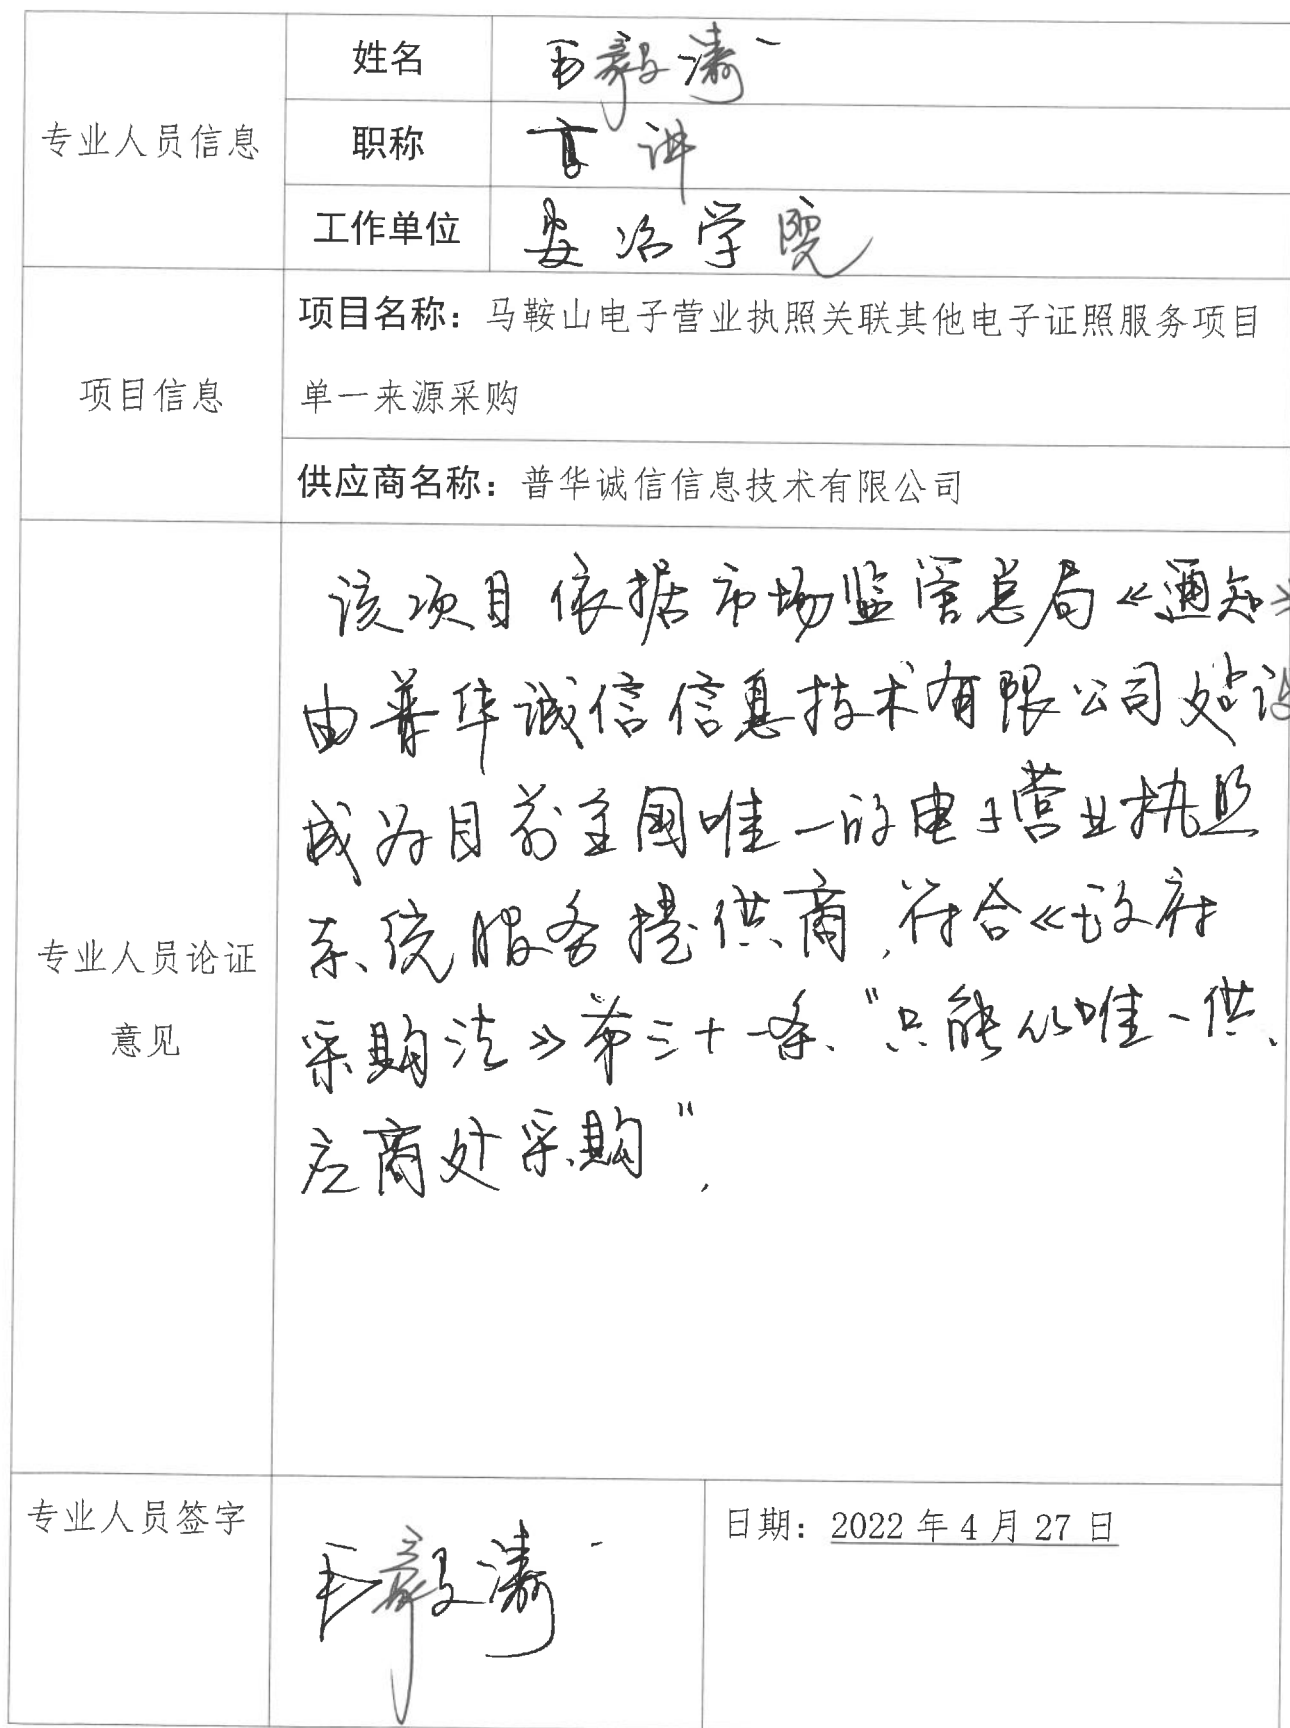 专业人员信息
姓名 毛毅涛
职称 高讲
工作单位 安冶学院
项目信息
项目名称：马鞍山电子营业执照关联其他电子证照服务项目
单一来源采购
供应商名称：普华诚信信息技术有限公司
专业人员论证
意见
该项目依据市场监管总局《通知》
由普华诚信信息技术有限公司建设
成为目前全国唯一的电子营业执照
系统服务提供商，符合《政府
采购法》第三十一条"只能从唯一供
应商处采购"．
专业人员签字
毛毅涛
日期：2022 年 4 月 27 日